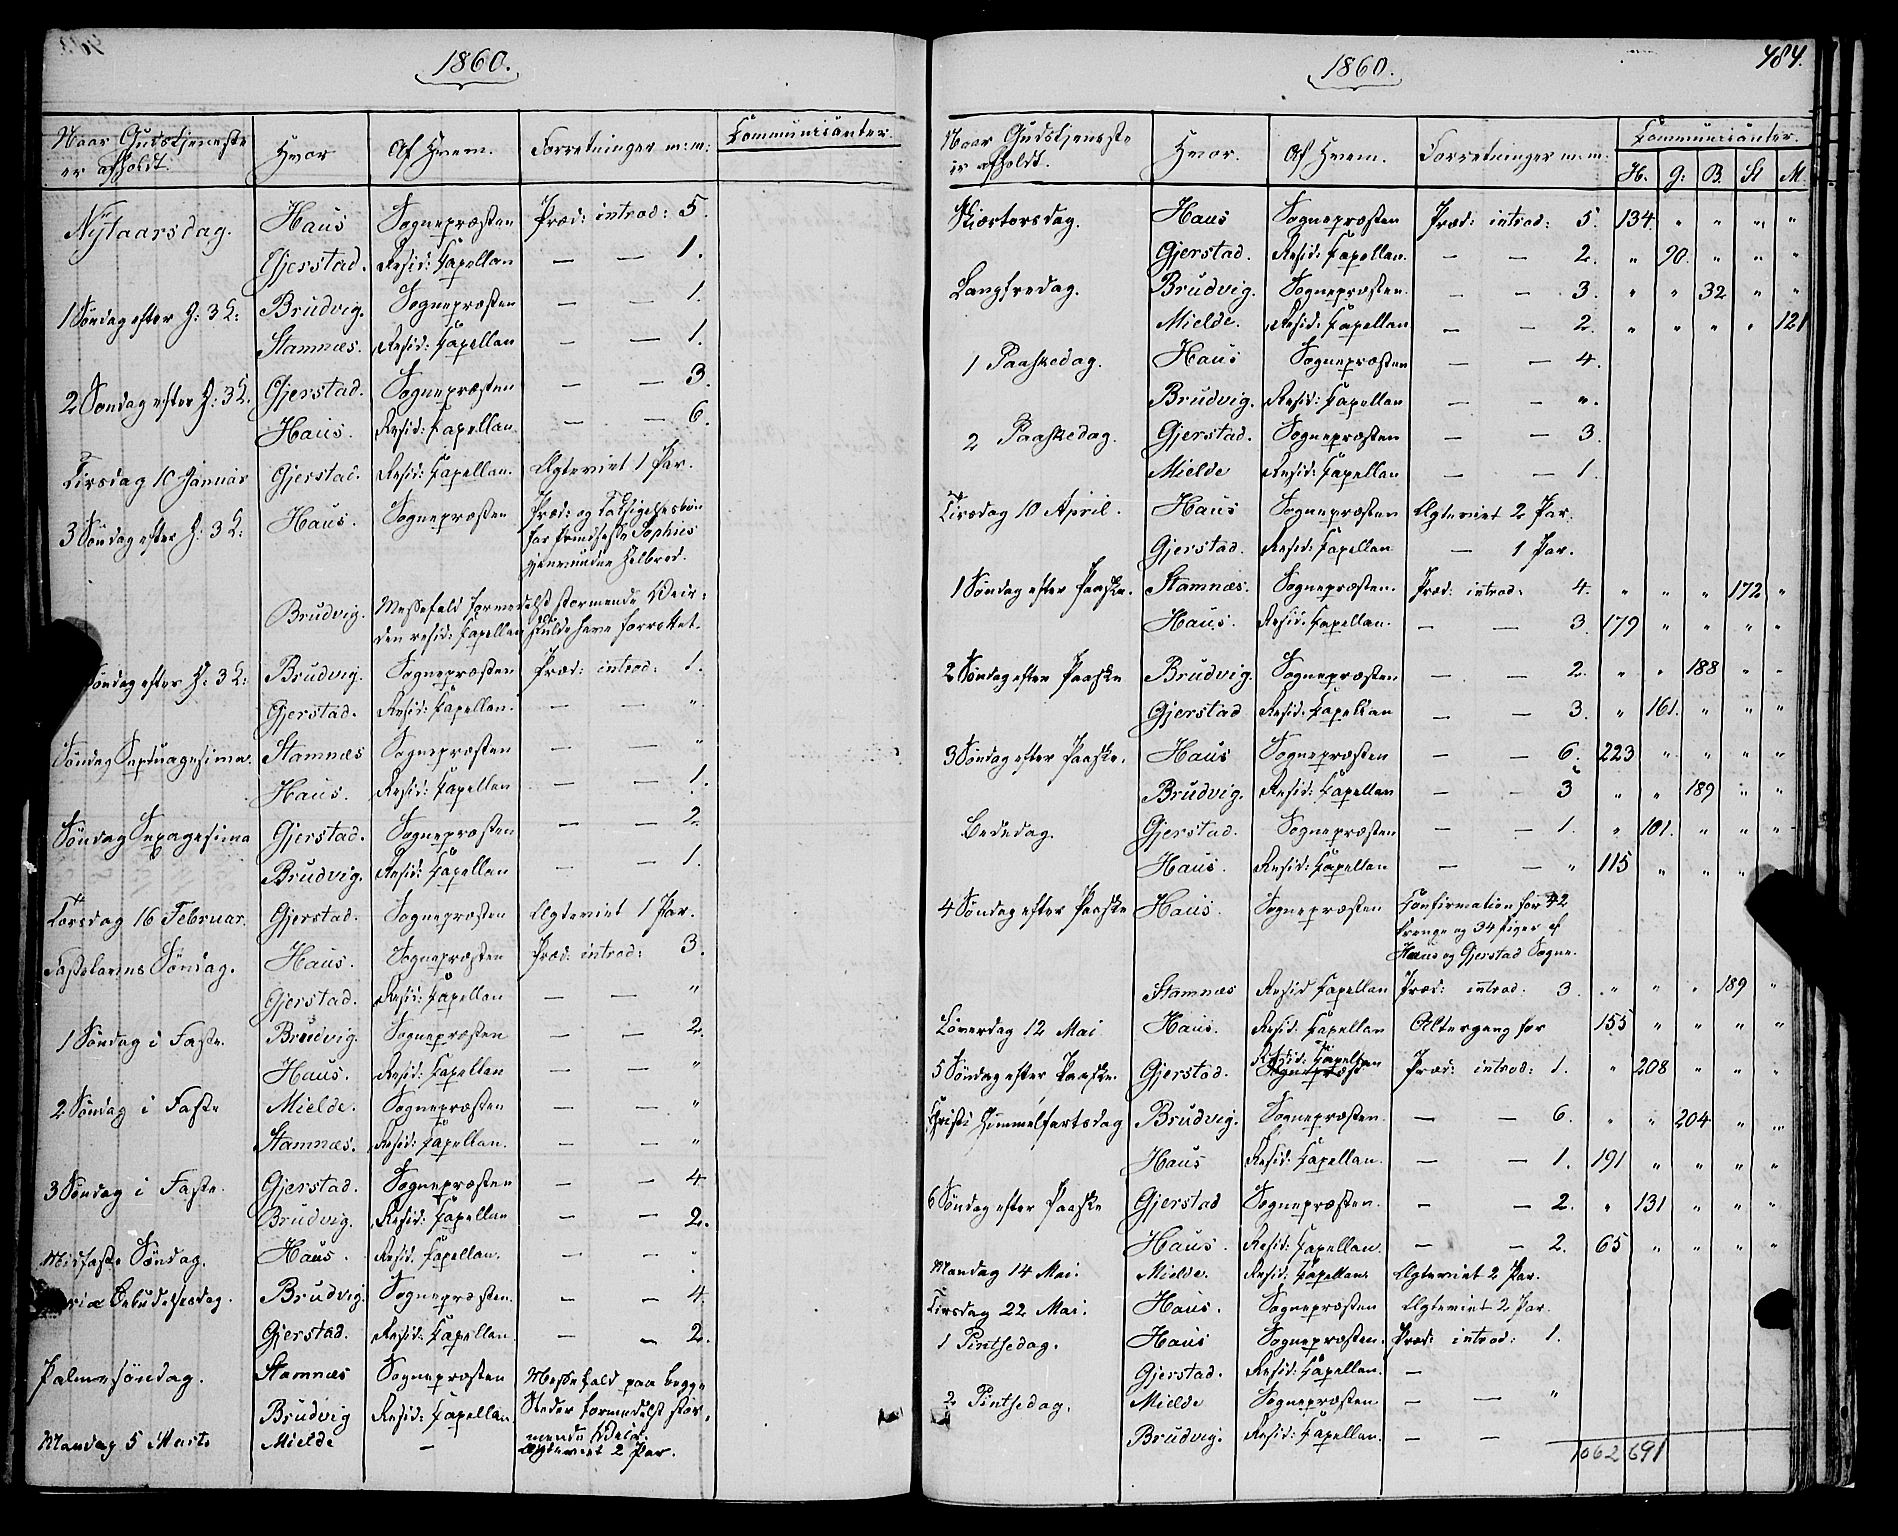 1860.
Naar Gudstjeneste er afholdt. Hvor Af Hvem. Forretninger m: m: Communicanter.
Nÿtaarsdag. Haus Sognepræsten Præd: introd: 5.
Gjerstad. Resid: Capellan — — 1.
1 Søndag efter H: 3 K: Brudvig. Sognepræsten — — 1.
Stamnæs. Resid: Capellan — — 1.
2 Søndag efter H: 3 K. Gjerstad. Sognepræsten — — 3.
Haus. Resid: Capellan — — 6.
Tirsdag 10 Januar Gjerstad. Resid: Capellan. Ægteviet 1 Par.
3 Søndag efter H: 3 K: Haus. Sognepræsten Præd: og Taksigelsesbøn
for Prindsesse Sophies
gjenvundne Helbred.
Brudvig. Messefald formedelst stormende Veir,
den resid: Capellan skulde have forrettet.
Søndag efter H: 3 K: Brudvig. Sognepræsten Præd: introd: 1.
Gjerstad. Resid: Capellan. — — "
Søndag Septuagesima. Stamnæs Sognepræsten — — "
Haus. Resid: Capellan — — 1.
Søndag Sexagesima Gjerstad. Sognepræsten — — 2.
Brudvig. Resid: Capellan — — 1.
Torsdag 16 Februar. Gjerstad. Sognepræsten Ægteviet 1 Par.
Fastelavns Søndag. Haus. Sognepræsten Præd: introd: 3.
Gjerstad. Resid: Capellan — — "
1 Søndag i Faste. Brudvig. Sognepræsten — — 2.
Haus. Resid: Capellan — — "
2 Søndag i Faste Mielde. Sognepræsten — — "
Stamnæs. Resid: Capellan. — — "
3 Søndag i Faste. Gjerstad. Sognepræsten — — 4
Brudvig. Resid: Capellan — — 2.
Midfaste Søndag. Haus. Resid. Capellan. — — "
Mariæ Bebudelsesdag. Brudvig. Sognepræsten. — — 4.
Gjerstad. Resid: Capellan. — — 2.
Palmesøndag. Stamnæs Sognepræsten Messefald paa begge
Brudvig Resid: Capellan Steder formedelst stor-
mende Veir.
Mandag 5 Marts Mielde — Ægteviet 2 Par.
1860.
484.
Naar Gudstjeneste er afholdt. Hvor. Af Hvem. Forretninger m: m: Communicanter.
H. G: B. St M.
Skiærtorsdag. Haus Sognepræsten Præd: introd: 5. 134. " " " "
Gjerstad. Resid: Capellan. — — 2. " 90. " " "
Langfredag. Brudvig. Sognepræsten. — — 3. " " 32 " "
Mielde. Resid: Capellan — — 2. " " " " 121
1 Paaskedag. Haus Sognepræsten — — 4.
Brudvig. Resid: Capellan — — ".
2 Paaskedag. Gjerstad. Sognepræsten — — 3.
Mielde Resid: Capellan — — 1.
Tirsdag 10 April. Haus Sognepræsten Ægteviet 2 Par.
Gjerstad. Resid: Capellan — 1 Par.
1 Søndag efter Paaske. Stamnæs. Sognepræsten. Præd: introd: 4. " " " 172 "
Haus. Resid: Capellan. — — 3. 179 " " " "
2 Søndag efter Paaske Brudvig. Sognepræsten — — 2. " " 188 " "
Gjerstad Resid: Capellan — — 3. " 161. " " "
3 Søndag efter Paaske. Haus Sognepræsten — — 6. 223 " " " "
Brudvig. Resid: Capellan — — 3 " " 189 " "
Bededag. Gjerstad. Sognepræsten — — 1. " 101. " " "
Haus. Resid: Capellan — — " 115 " " "
4 Søndag efter Paaske Haus. Sognepræsten Confirmation for 42
Drenge og 34 Piger af
Haus og Gjerstad Sogne.
Stamnæs Resid Capellan Præd: introd. 3. " " " 189 "
Løverdag 12 Mai Haus. Resid: Capellan Altergang for 155 " " " "
5 Søndag efter Paaske. Gjerstad. Resid: Capellan Præd: introd: 1. " 208 " " "
Christi Himmelfartsdag Brudvig. Sognepræsten. — — 6. " " 204 " "
Haus Resid: Capellan. — — 1. 191 " " " "
6 Søndag efter Paaske Gjerstad Sognepræsten. — — 2. " 131 " " "
Haus. Resid: Capellan. — — 2. 65 " " " "
Mandag 14 Mai. Mielde. Resid: Capellan. Ægteviet 2 Par.
Tirsdag 22 Mai. Haus. Sognepræsten Ægteviet 2 Par.
1 Pintsedag. Haus Sognepræsten. Præd: introd: 1.
Gjerstad. Resid: Capellan. —
2 Pintsedag. Mielde Sognepræsten — — "
Brudvig. Resid: Capellan. — —
1062 691